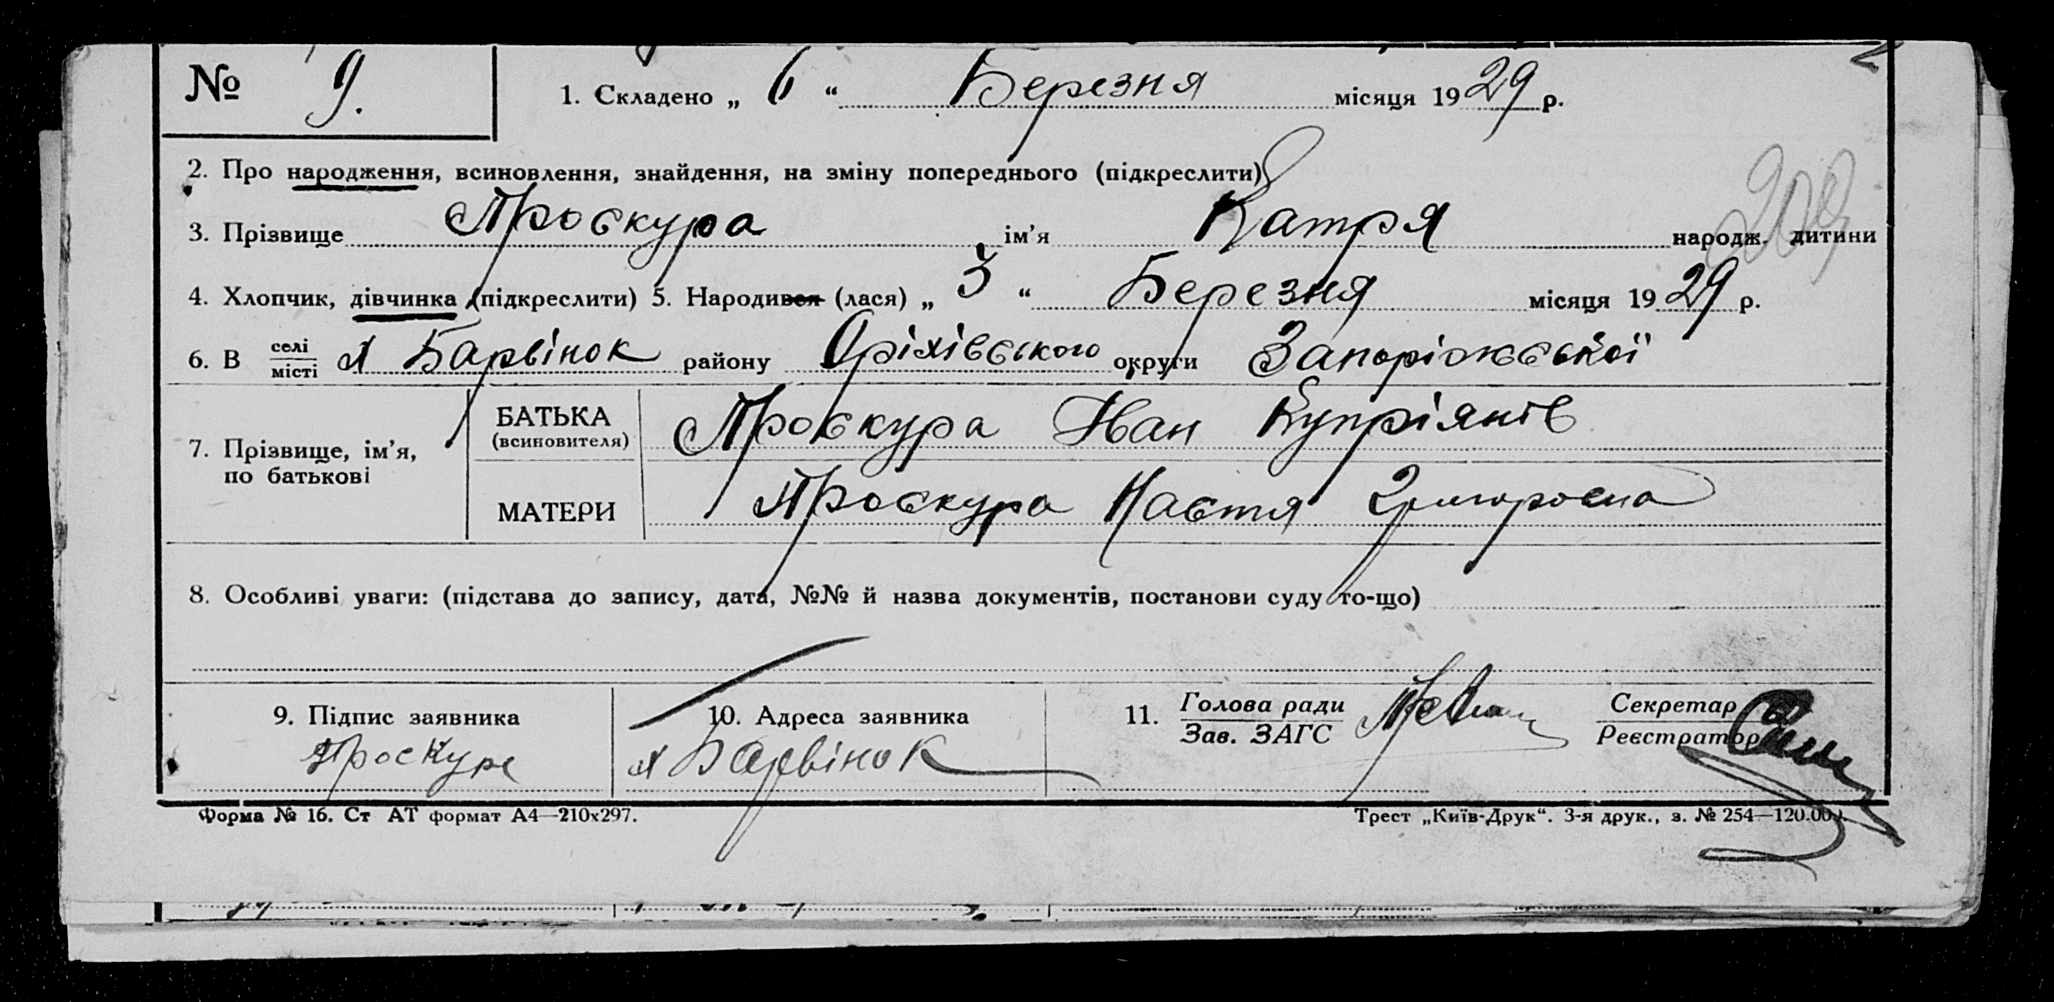 № 9. 1. Складено „ 6 “ Березня місяця 1929 р.
2. Про народження, всиновлення, знайдення, на зміну попереднього (підкреслити)
209
3. Прізвище Проскура ім’я Катря народж. дитини
4. Хлопчик, дівчинка (підкреслити) 5. Народився (лася) „ 3 “ Березня місяця 1929 р.
6. В селі місті х Барвінок району Оріхівського округи Запоріжської
7. Прізвище, ім’я, по батькові
БАТЬКА (всиновителя) Проскура Іван Купріянів
МАТЕРИ Проскура Настя Григоровна
8. Особливі уваги: (підстава до запису, дата, №№ й назва документів, постанови суду то-що)
9. Підпис заявника 10. Адреса заявника 11. Голова ради Зав. ЗАГС Секретар Реєстратор
Проскура х Барвінок
Форма № 16. Ст АТ формат А4—210х297. Трест „Київ-Друк“. 3-я друк., з. № 254—120.000